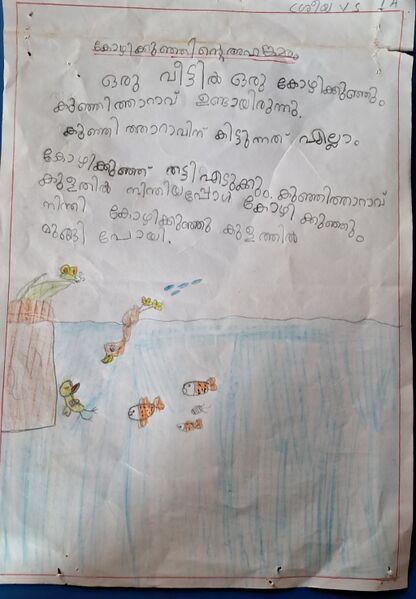 ശ്രീയ V S 1 A
കോഴിക്കുഞ്ഞിന്റെ അഹങ്കാരം
ഒരു വീട്ടിൽ ഒരു കോഴിക്കുഞ്ഞും
കുഞ്ഞിത്താറാവ് ഉണ്ടായിരുന്നു.
കുഞ്ഞി ത്താറാവിന് കിട്ടുന്നത് എല്ലാം
കോഴിക്കുഞ്ഞ് തട്ടിഎടുക്കും. കുഞ്ഞിത്താറാവ്
കുളത്തിൽ നീന്തിയപ്പോൾ കോഴി ക്കുഞ്ഞും
നീന്തി കോഴിക്കുഞ്ഞു കുളത്തിൽ
മുങ്ങി പോയി.